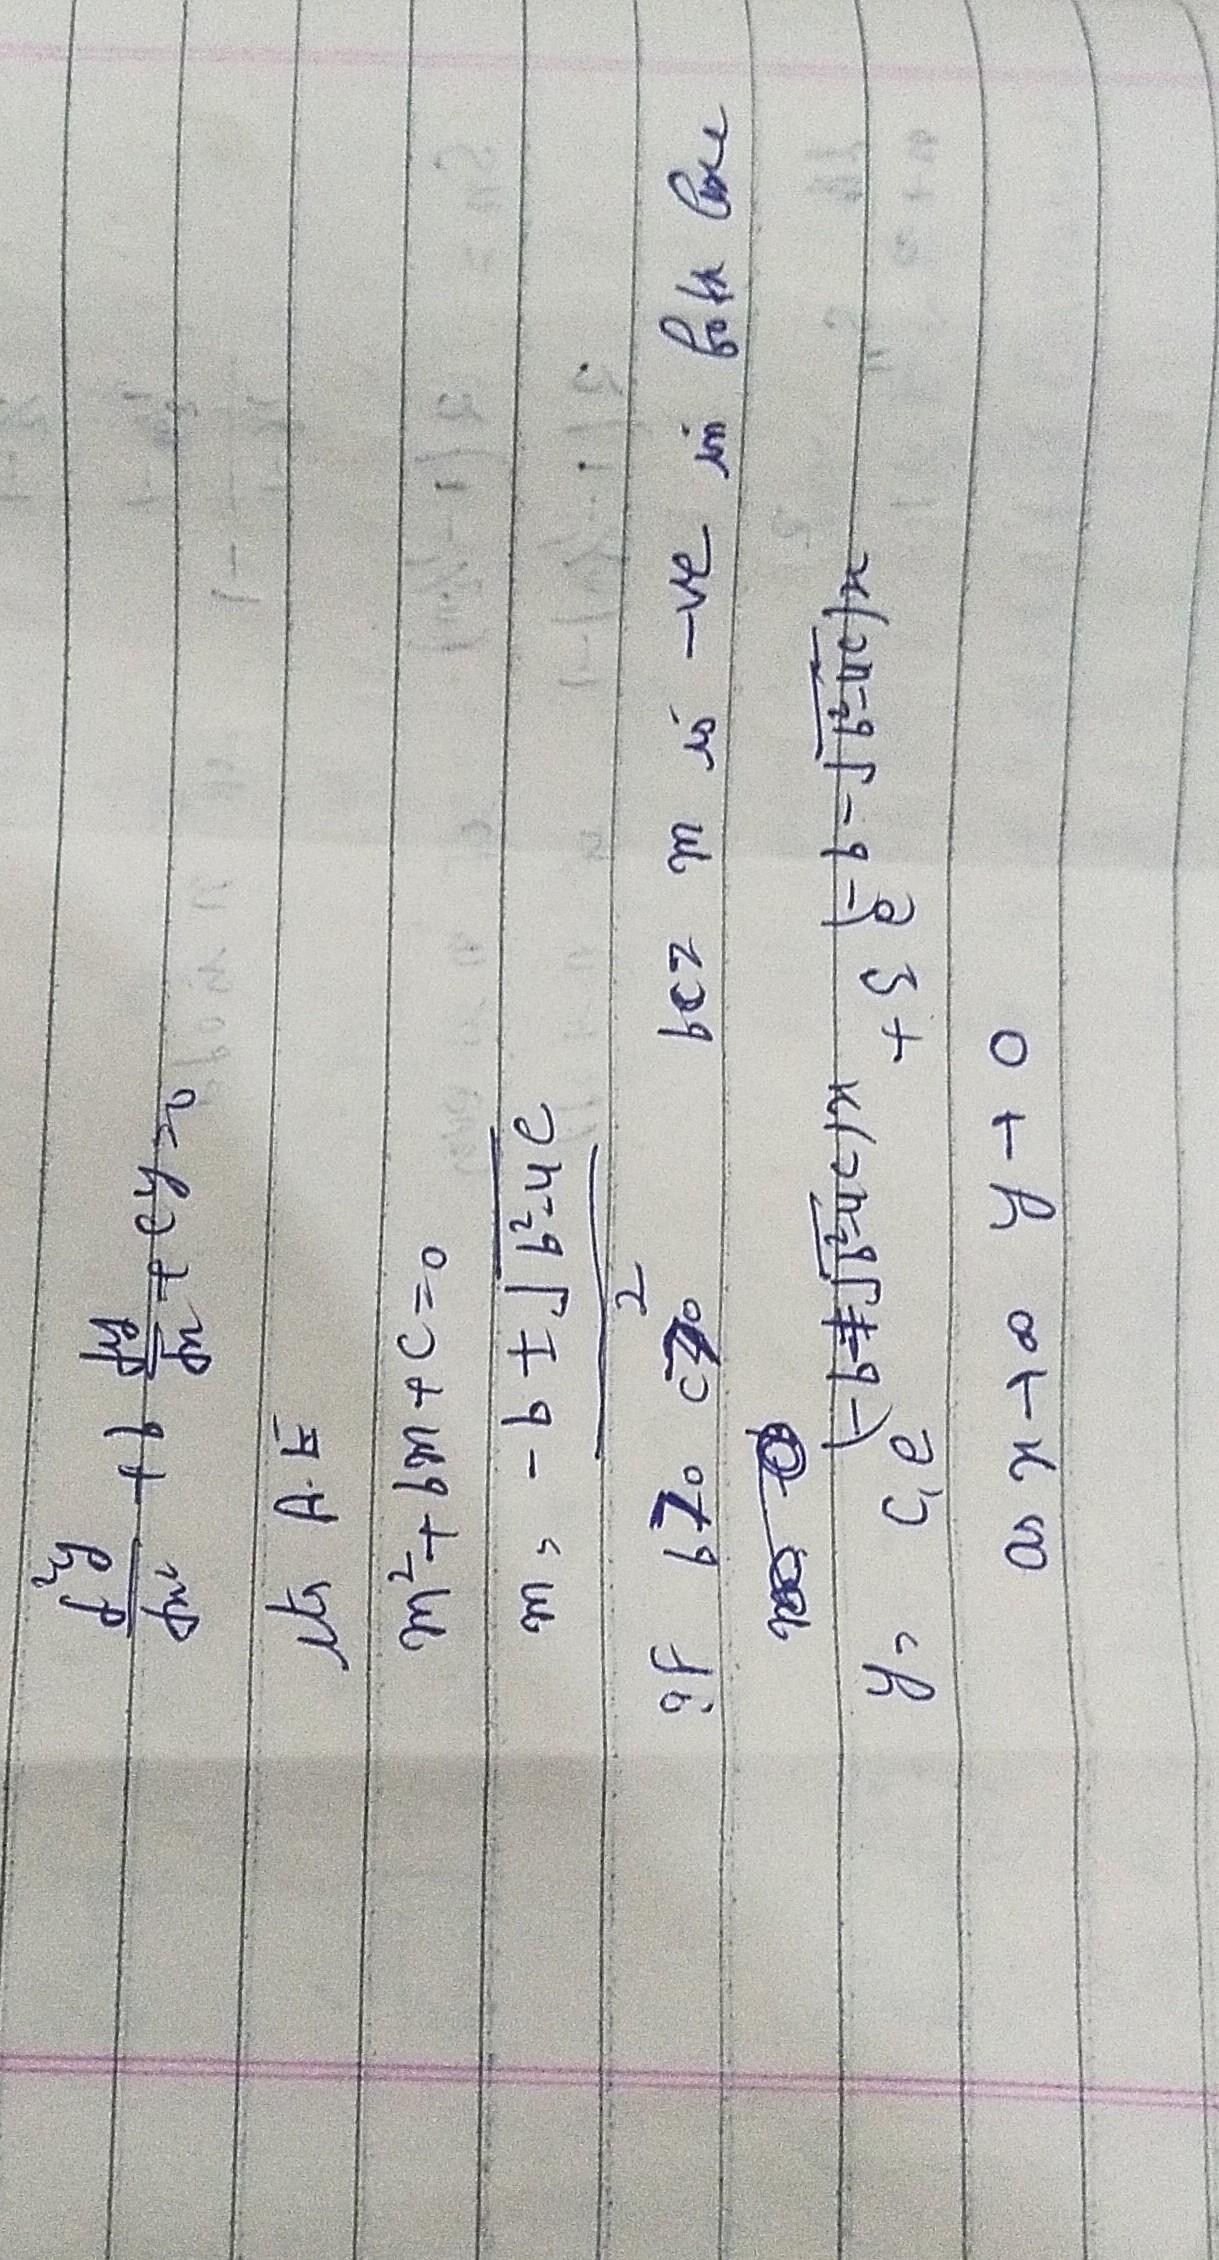 d²y/dx² + b dy/dx + cy = 0
its A.E
m² + bm + c = 0
m = -b ± √b²-4c / 2
if b>0 c>0 bcz m is -ve in both case
y = c₁e^(-b+√b²-4c)x + c₂e^(-b-√b²-4c)x
as x→∞ y→0